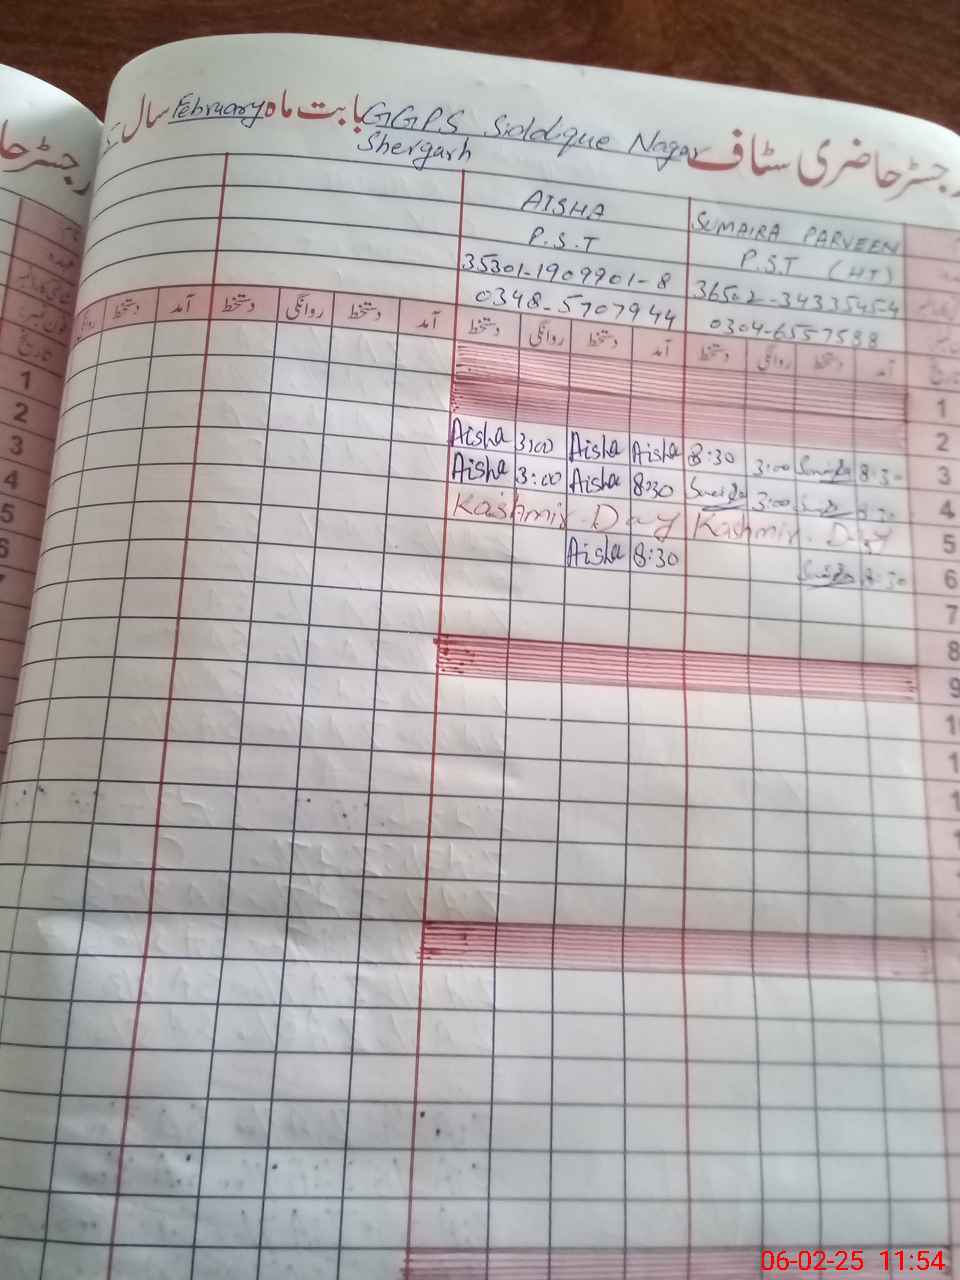 رجسٹر حاضری سٹاف GGPS Siddique Nagar بابت ماہ February سال
Shergarh
رجسٹر حا
SUMAIRA PARVEEN AISHA
P.S.T (HT) P.S.T
35301-1909901-8
0304-6557588 0348-5707944
آمد دستخط روانگی دستخط آمد دستخط روانگی دستخط آمد دستخط روانگی دستخط آمد دستخط
تاریخ
1
2
3 8:30 3:00 8:30 Aisha Aisha 3:00 Aisha
4 8:30 3:00 8:30 Aisha 3:00 Aisha
5 Kashmir Day Kashmir Day
6 8:30 8:30 Aisha
7
8
9
1
2
3
4
5
6
06-02-25 11:54